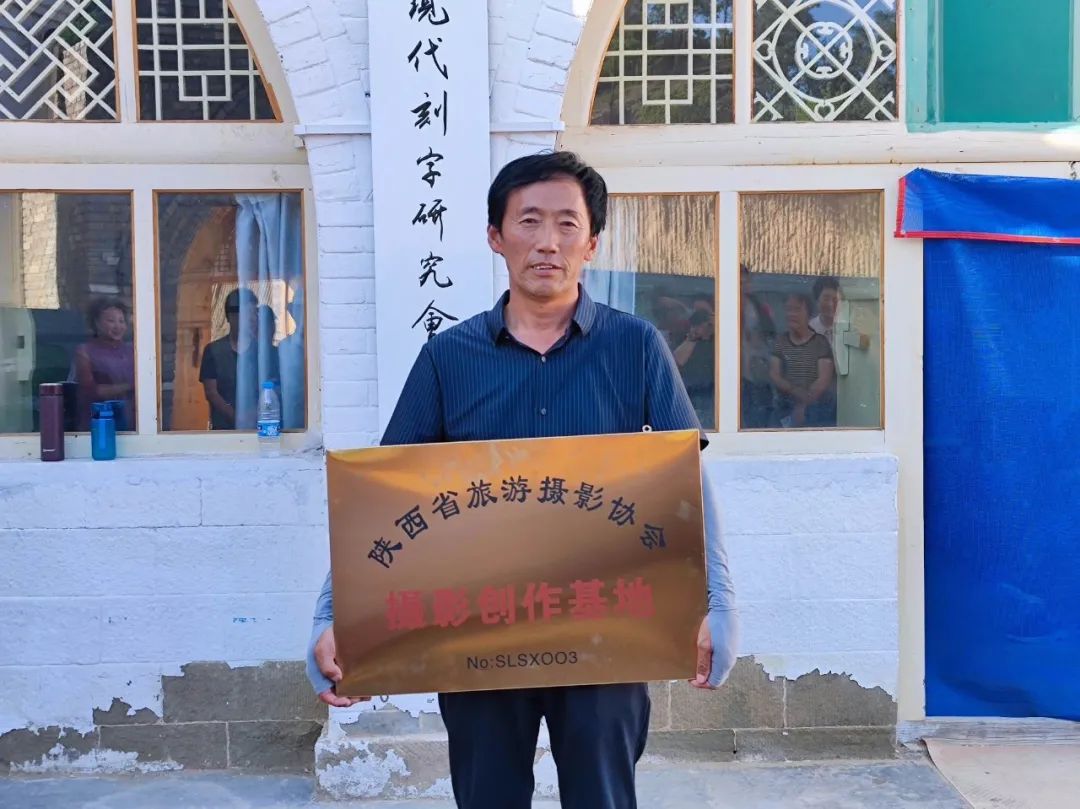 現代刻字研究會
陕西省旅游摄影协会
摄影创作基地
No:SLSX003